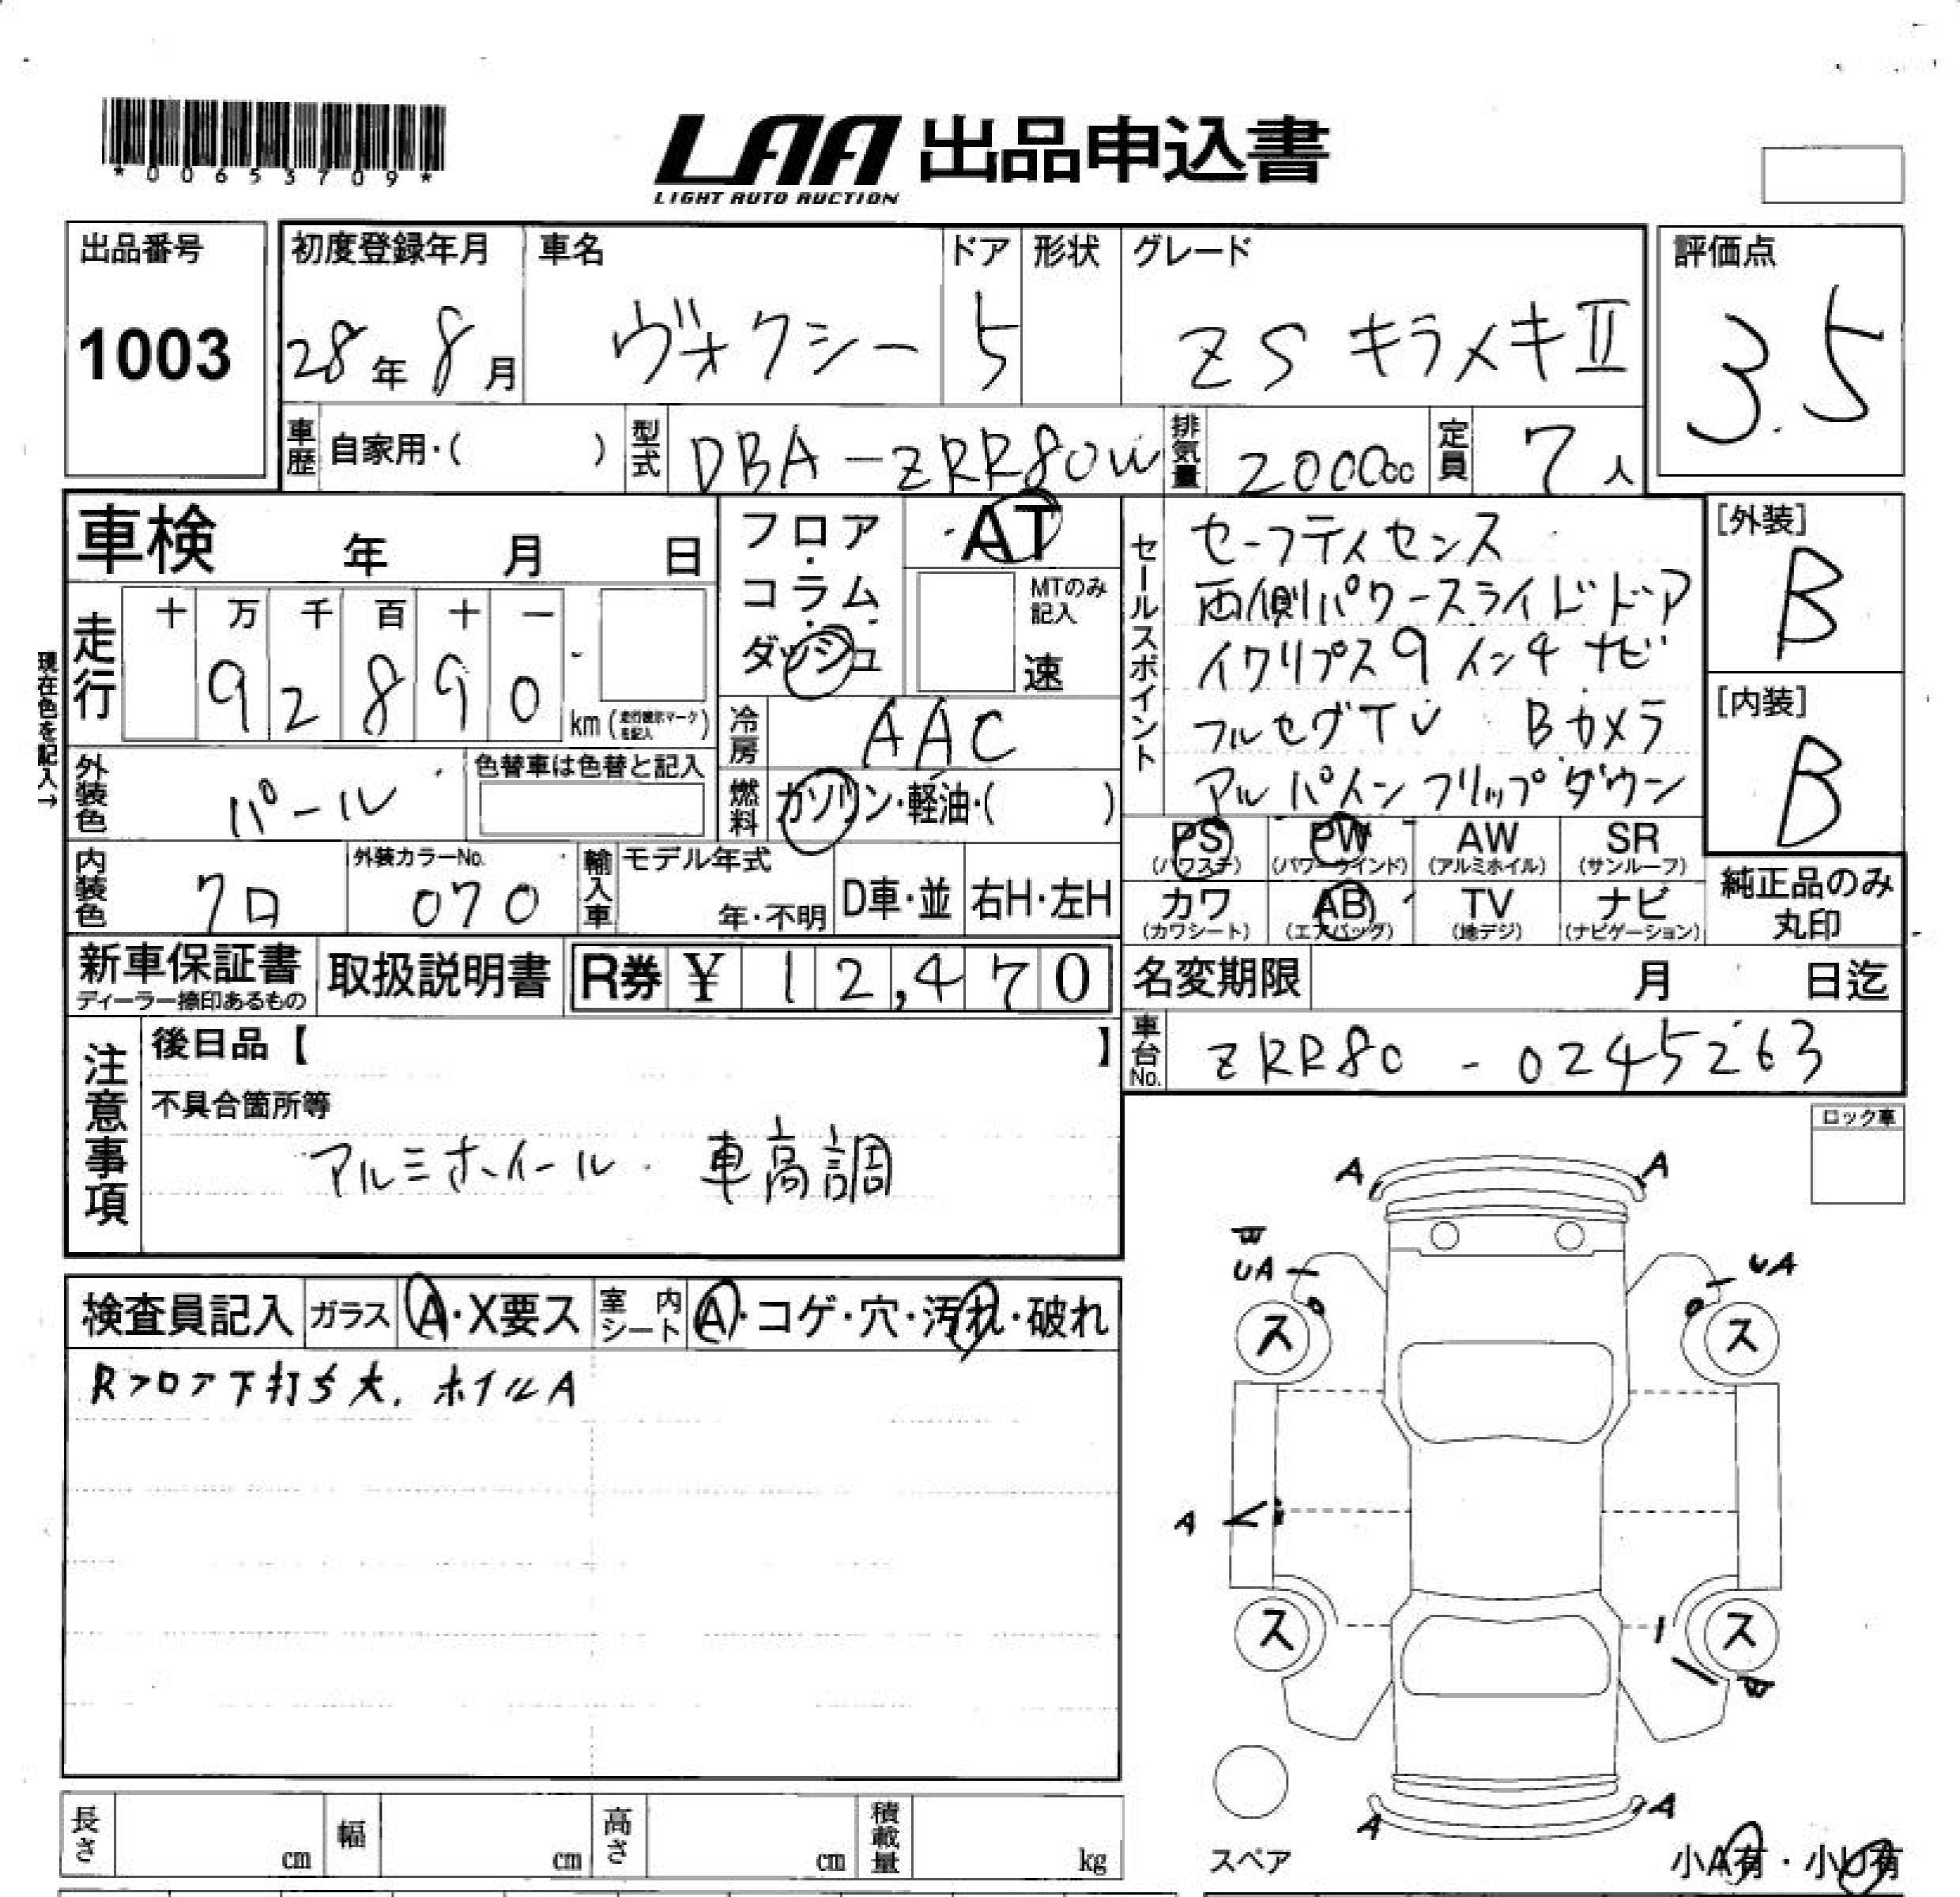 *00653709*
LAA 出品申込書
LIGHT AUTO AUCTION
出品番号
1003
初度登録年月
28年 8月
車名
ヴォクシー
ドア
5
形状
グレード
ZS キラメキⅡ
評価点
3.5
車歴 自家用・( )
型式 DBA-ZRR80W
排気量 2000cc
定員 7人
車検 年 月 日
フロア・コラム・ダッシュ
AT
MTのみ記入
速
走行
十 万 千 百 十 一
9 2 8 9 0 km (走行表示マークを記入)
現在色を記入→
外装色 パール
色替車は色替と記入
冷房 AAC
燃料 ガソリン・軽油・( )
セールスポイント
セーフティセンス
両側パワースライドドア
イクリプス9インチ ナビ
フルセグTV Bカメラ
アルパインフリップダウン
[外装]
B
[内装]
B
PS (パワステ) PW (パワーウインド) AW (アルミホイル) SR (サンルーフ)
カワ (カワシート) AB (エアバッグ) TV (地デジ) ナビ (ナビゲーション)
純正品のみ
丸印
内装色 クロ
外装カラーNo. 070
輸入車 モデル年式 年・不明 D車・並 右H・左H
新車保証書 ディーラー捺印あるもの
取扱説明書
R券 ¥ 12,470
名変期限 月 日迄
車台No. ZRR80 - 0245263
注意事項
後日品【 】
不具合箇所等
アルミホイール 車高調
ロック車
検査員記入 ガラス A・X要ス 室内シート A・コゲ・穴・汚れ・破れ
Rフロア下打ち大. ホイルA
A A
UA UA
ス ス
A
ス ス
A A
スペア
小A有・小U有
長さ cm 幅 cm 高さ cm 積載量 kg